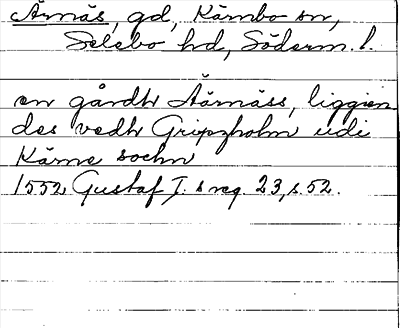 Ärnäs, gd, Kärnbo sn,
Selebo hd, Söderm. l.
en gårdh Äärnäss, liggien-
des vedh Gripzholm udi
Kärne sochn
1552 Gustaf I. s reg. 23, s. 52.